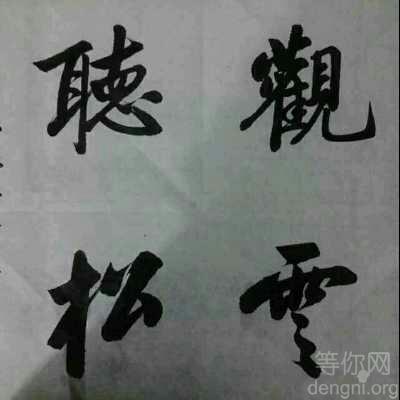 觀雲
聽松
等你网
dengni.org